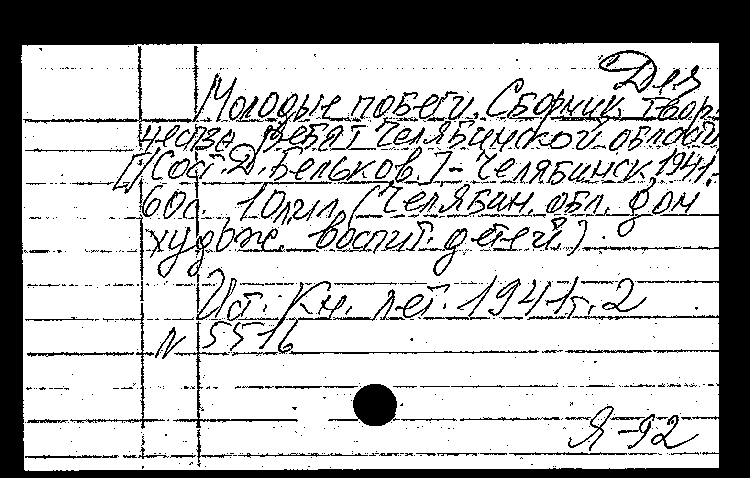 Дея
Молодые побеги. Сборник твор-
чества ребят Челябинской области
[/Сост. Д. Бельков.] - Челябинск, 1941.
60с. 10 илл. (Челябин. обл. дом
худож. воспит. детей.)
Ист.: Кн. лет. 1941г. 2
N 5516
Я-92